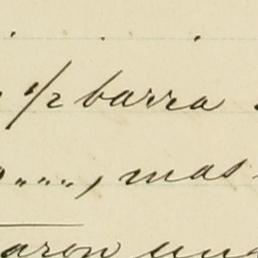 1/2 barra
, mas
aron una